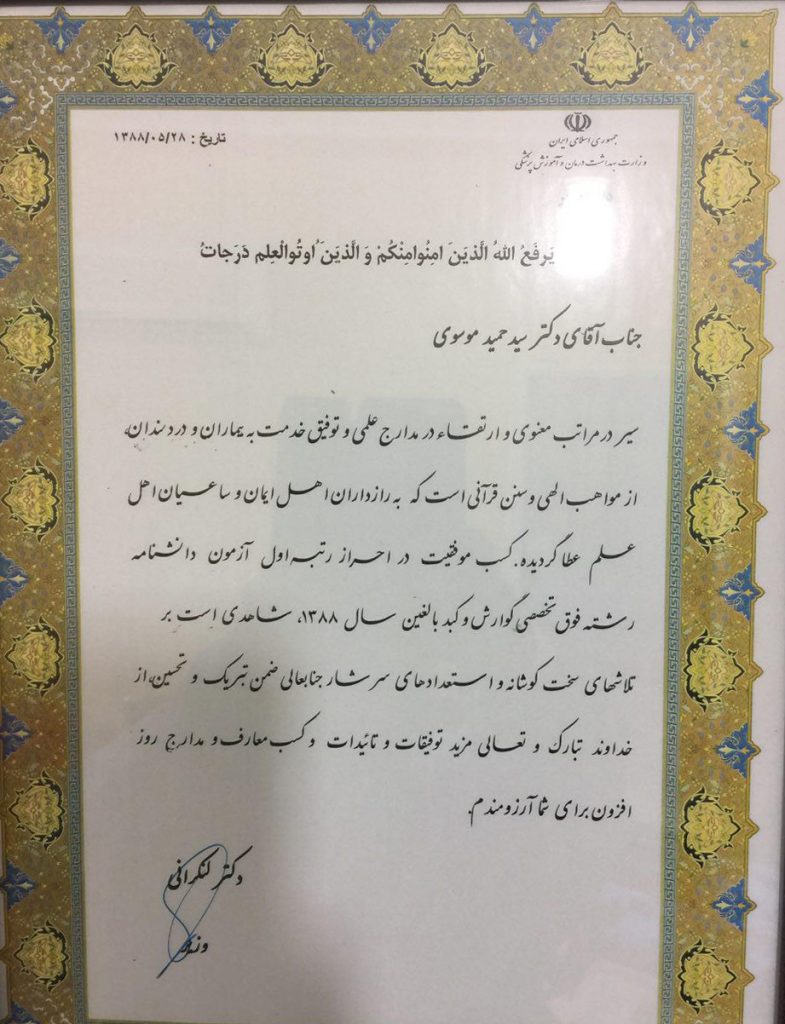 جمهوری اسلامی ایران
وزارت بهداشت درمان و آموزش پزشکی
تاریخ : ۱۳۸۸/۰۵/۲۸
یَرفَعُ اللهُ الَّذینَ امِنُوامِنْکُمْ وَ الَّذینَ اُوتُوالْعِلم دَرَجاتُ
جناب آقای دکتر سید حمید موسوی
سیر در مراتب معنوی و ارتقاء در مدارج علمی و توفیق خدمت به بیماران و دردمندان،
از مواهب الهی و سنن قرآنی است که به رازداران اهل ایمان و ساعیان اهل
علم عطا گردیده. کسب موفقیت در احراز رتبه اول آزمون دانشنامه
رشته فوق تخصصی گوارش و کبد بالغین سال ۱۳۸۸، شاهدی است بر
تلاشهای سخت کوشانه و استعدادهای سرشار جنابعالی ضمن تبریک و تحسین، از
خداوند تبارک و تعالی مزید توفیقات و تائیدات و کسب معارف و مدارج روز
افزون برای شما آرزومندم.
دکتر لنکرانی
وزیر